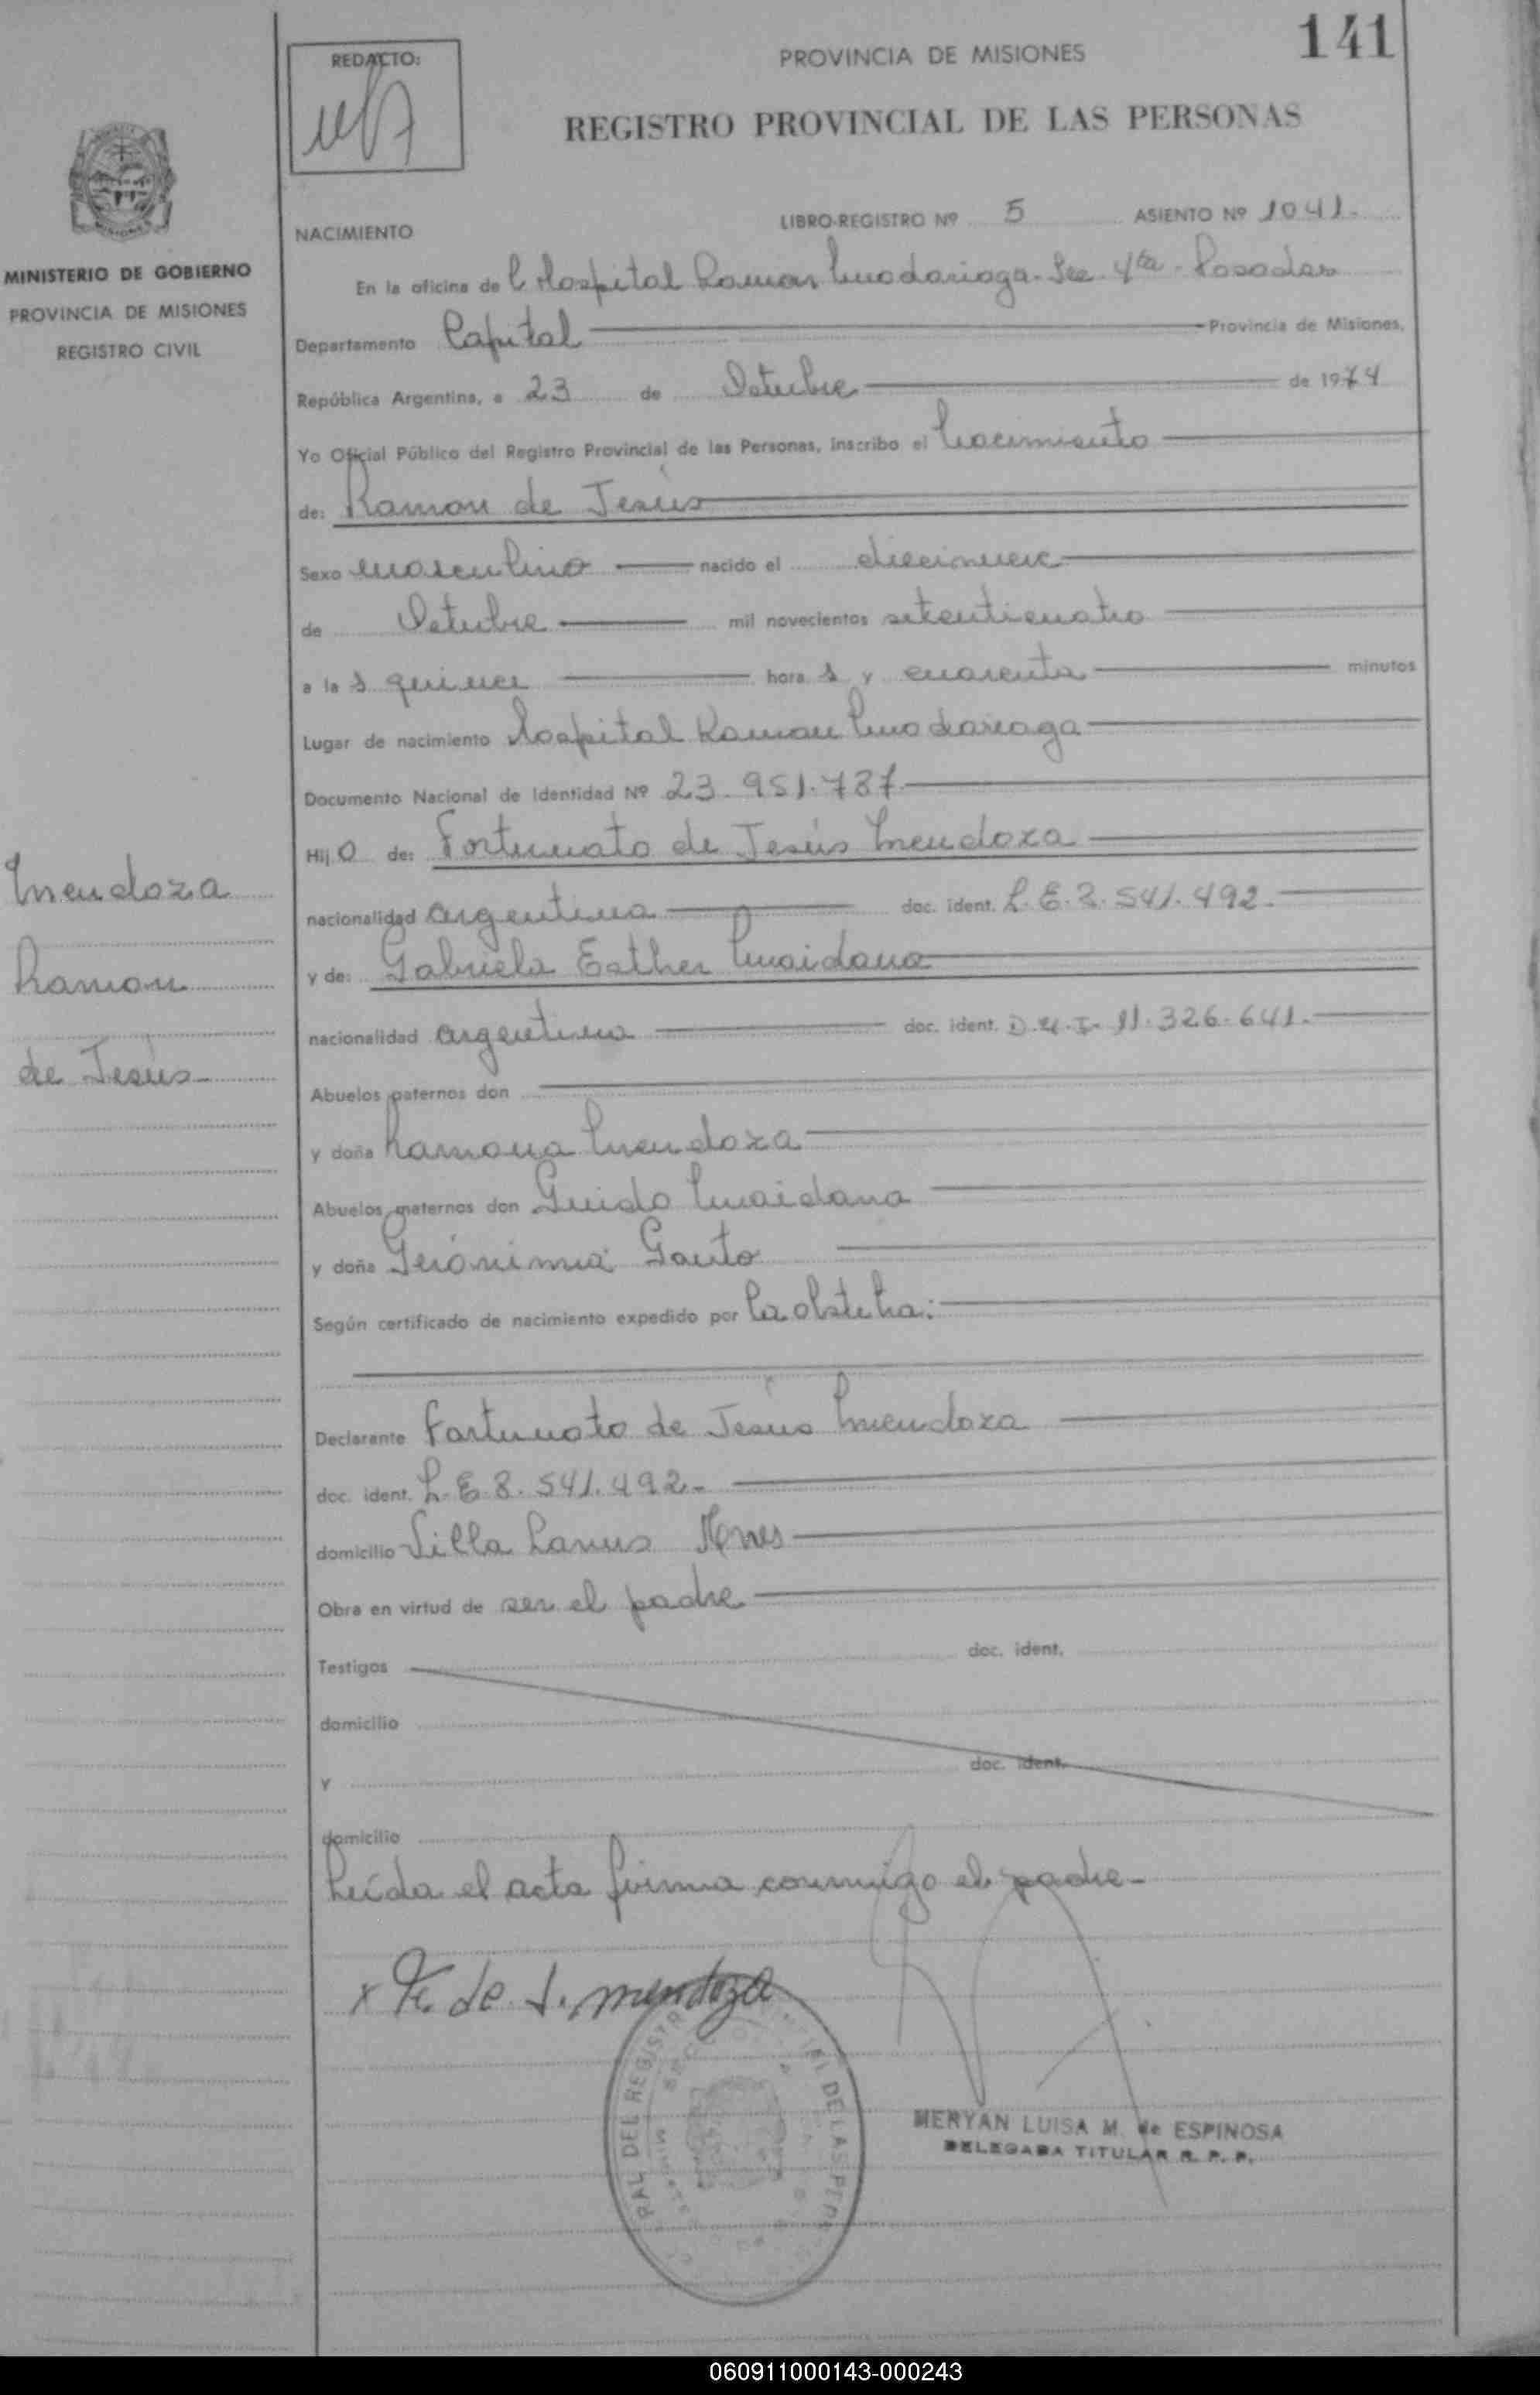 141
REDACTO:
PROVINCIA DE MISIONES
REGISTRO PROVINCIAL DE LAS PERSONAS
MINISTERIO DE GOBIERNO
PROVINCIA DE MISIONES
REGISTRO CIVIL
NACIMIENTO
LIBRO-REGISTRO Nº 5 ASIENTO Nº 1041.
En la oficina del Hospital Ramon Madariaga - Sec. 4ta - Posadas
Departamento Capital Provincia de Misiones,
República Argentina, a 23 de Octubre de 1974
Yo Oficial Público del Registro Provincial de las Personas, inscribo el Nacimiento
de: Ramon de Jesús
Sexo masculino nacido el diecinueve
de Octubre mil novecientos setenticuatro
a las quince horas y cuarenta minutos
Lugar de nacimiento Hospital Ramon Madariaga
Documento Nacional de Identidad Nº 23.951.737
Hijo de: Fortunato de Jesús Mendoza
nacionalidad argentina doc. ident. L.E. 8.541.492.
y de: Gabriela Esther Maidana
nacionalidad argentina doc. ident. D.N.I. 11.326.641.
Abuelos paternos don
y doña Ramona Mendoza
Abuelos maternos don Guido Maidana
y doña Gerónima Gauto
Según certificado de nacimiento expedido por la obstetra.
Declarante Fortunato de Jesús Mendoza
doc. ident. L.E. 8.541.492.
domicilio Villa Lanus Mnes
Obra en virtud de ser el padre
Testigos doc. ident.
domicilio
y doc. ident.
domicilio
Leída el acta firma conmigo el padre.
x F. de J. mendoza
MERYAN LUISA M. de ESPINOSA
DELEGADA TITULAR R. P. P.
Mendoza
Ramon
de Jesús
060911000143-000243